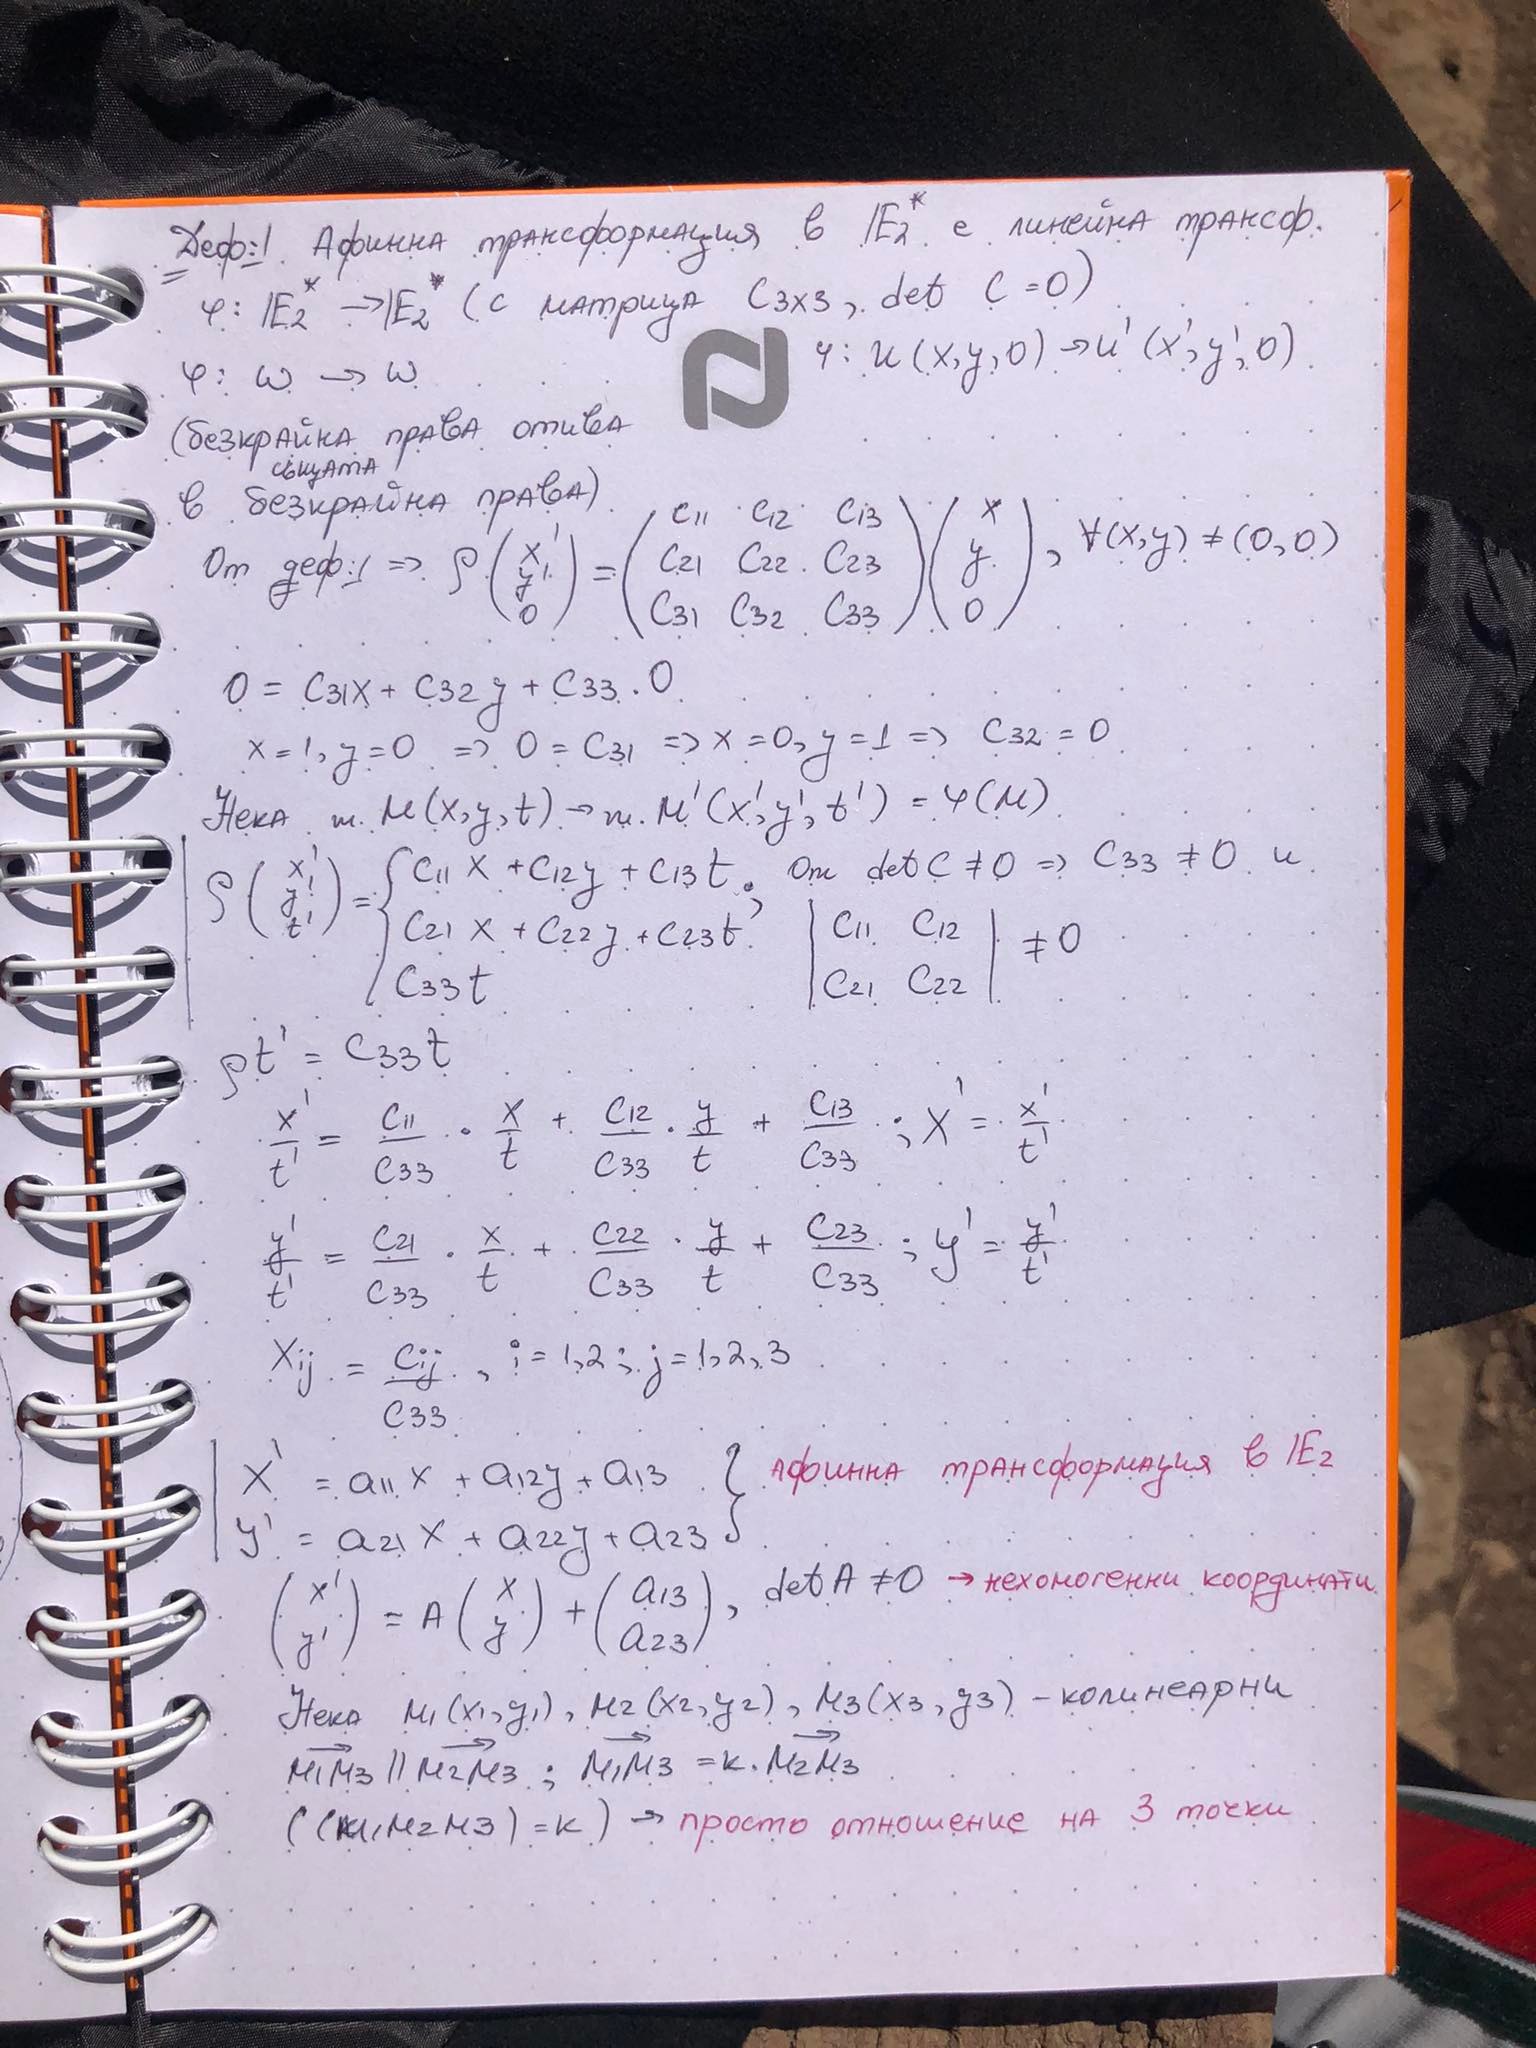 Деф:1 Афинна трансформация в |E₂* е линейна трансф.
φ: |E₂* → |E₂* (с матрица C₃ₓ₃, det C = 0)
φ: ω → ω
φ: U(x, y, 0) → U'(x', y', 0)
(безкрайна права отива
същата
в безкрайна права)
От деф:1 => ρ (x' y' 0) = (C₁₁ C₁₂ C₁₃
C₂₁ C₂₂ C₂₃
C₃₁ C₃₂ C₃₃) (x y 0), ∀(x,y) ≠ (0,0)
0 = C₃₁x + C₃₂y + C₃₃.0
x=1, y=0 => 0 = C₃₁ => x=0, y=1 => C₃₂ = 0
Нека т. M(x,y,t) → т. M'(x',y',t') = φ(M)
ρ (x' y' t') = { C₁₁x + C₁₂y + C₁₃t ; От det C ≠ 0 => C₃₃ ≠ 0 и
C₂₁x + C₂₂y + C₂₃t
C₃₃t
| C₁₁ C₁₂
C₂₁ C₂₂ | ≠ 0
ρt' = C₃₃t
x'/t' = C₁₁/C₃₃ . x/t + C₁₂/C₃₃ . y/t + C₁₃/C₃₃ ; X' = x'/t'
y'/t' = C₂₁/C₃₃ . x/t + C₂₂/C₃₃ . y/t + C₂₃/C₃₃ ; y' = y'/t'
Xij = Cij/C₃₃ , i = 1,2 ; j = 1,2,3
| X' = a₁₁x + a₁₂y + a₁₃ } афинна трансформация в |E₂
| y' = a₂₁x + a₂₂y + a₂₃
(x' y') = A (x y) + (a₁₃ a₂₃), det A ≠ 0 → нехомогенни координати
Нека M₁(x₁,y₁), M₂(x₂,y₂), M₃(x₃,y₃) – колинеарни
M₁M₃ || M₂M₃ ; M₁M₃ = k.M₂M₃
((M₁M₂M₃) = k) → просто отношение на 3 точки